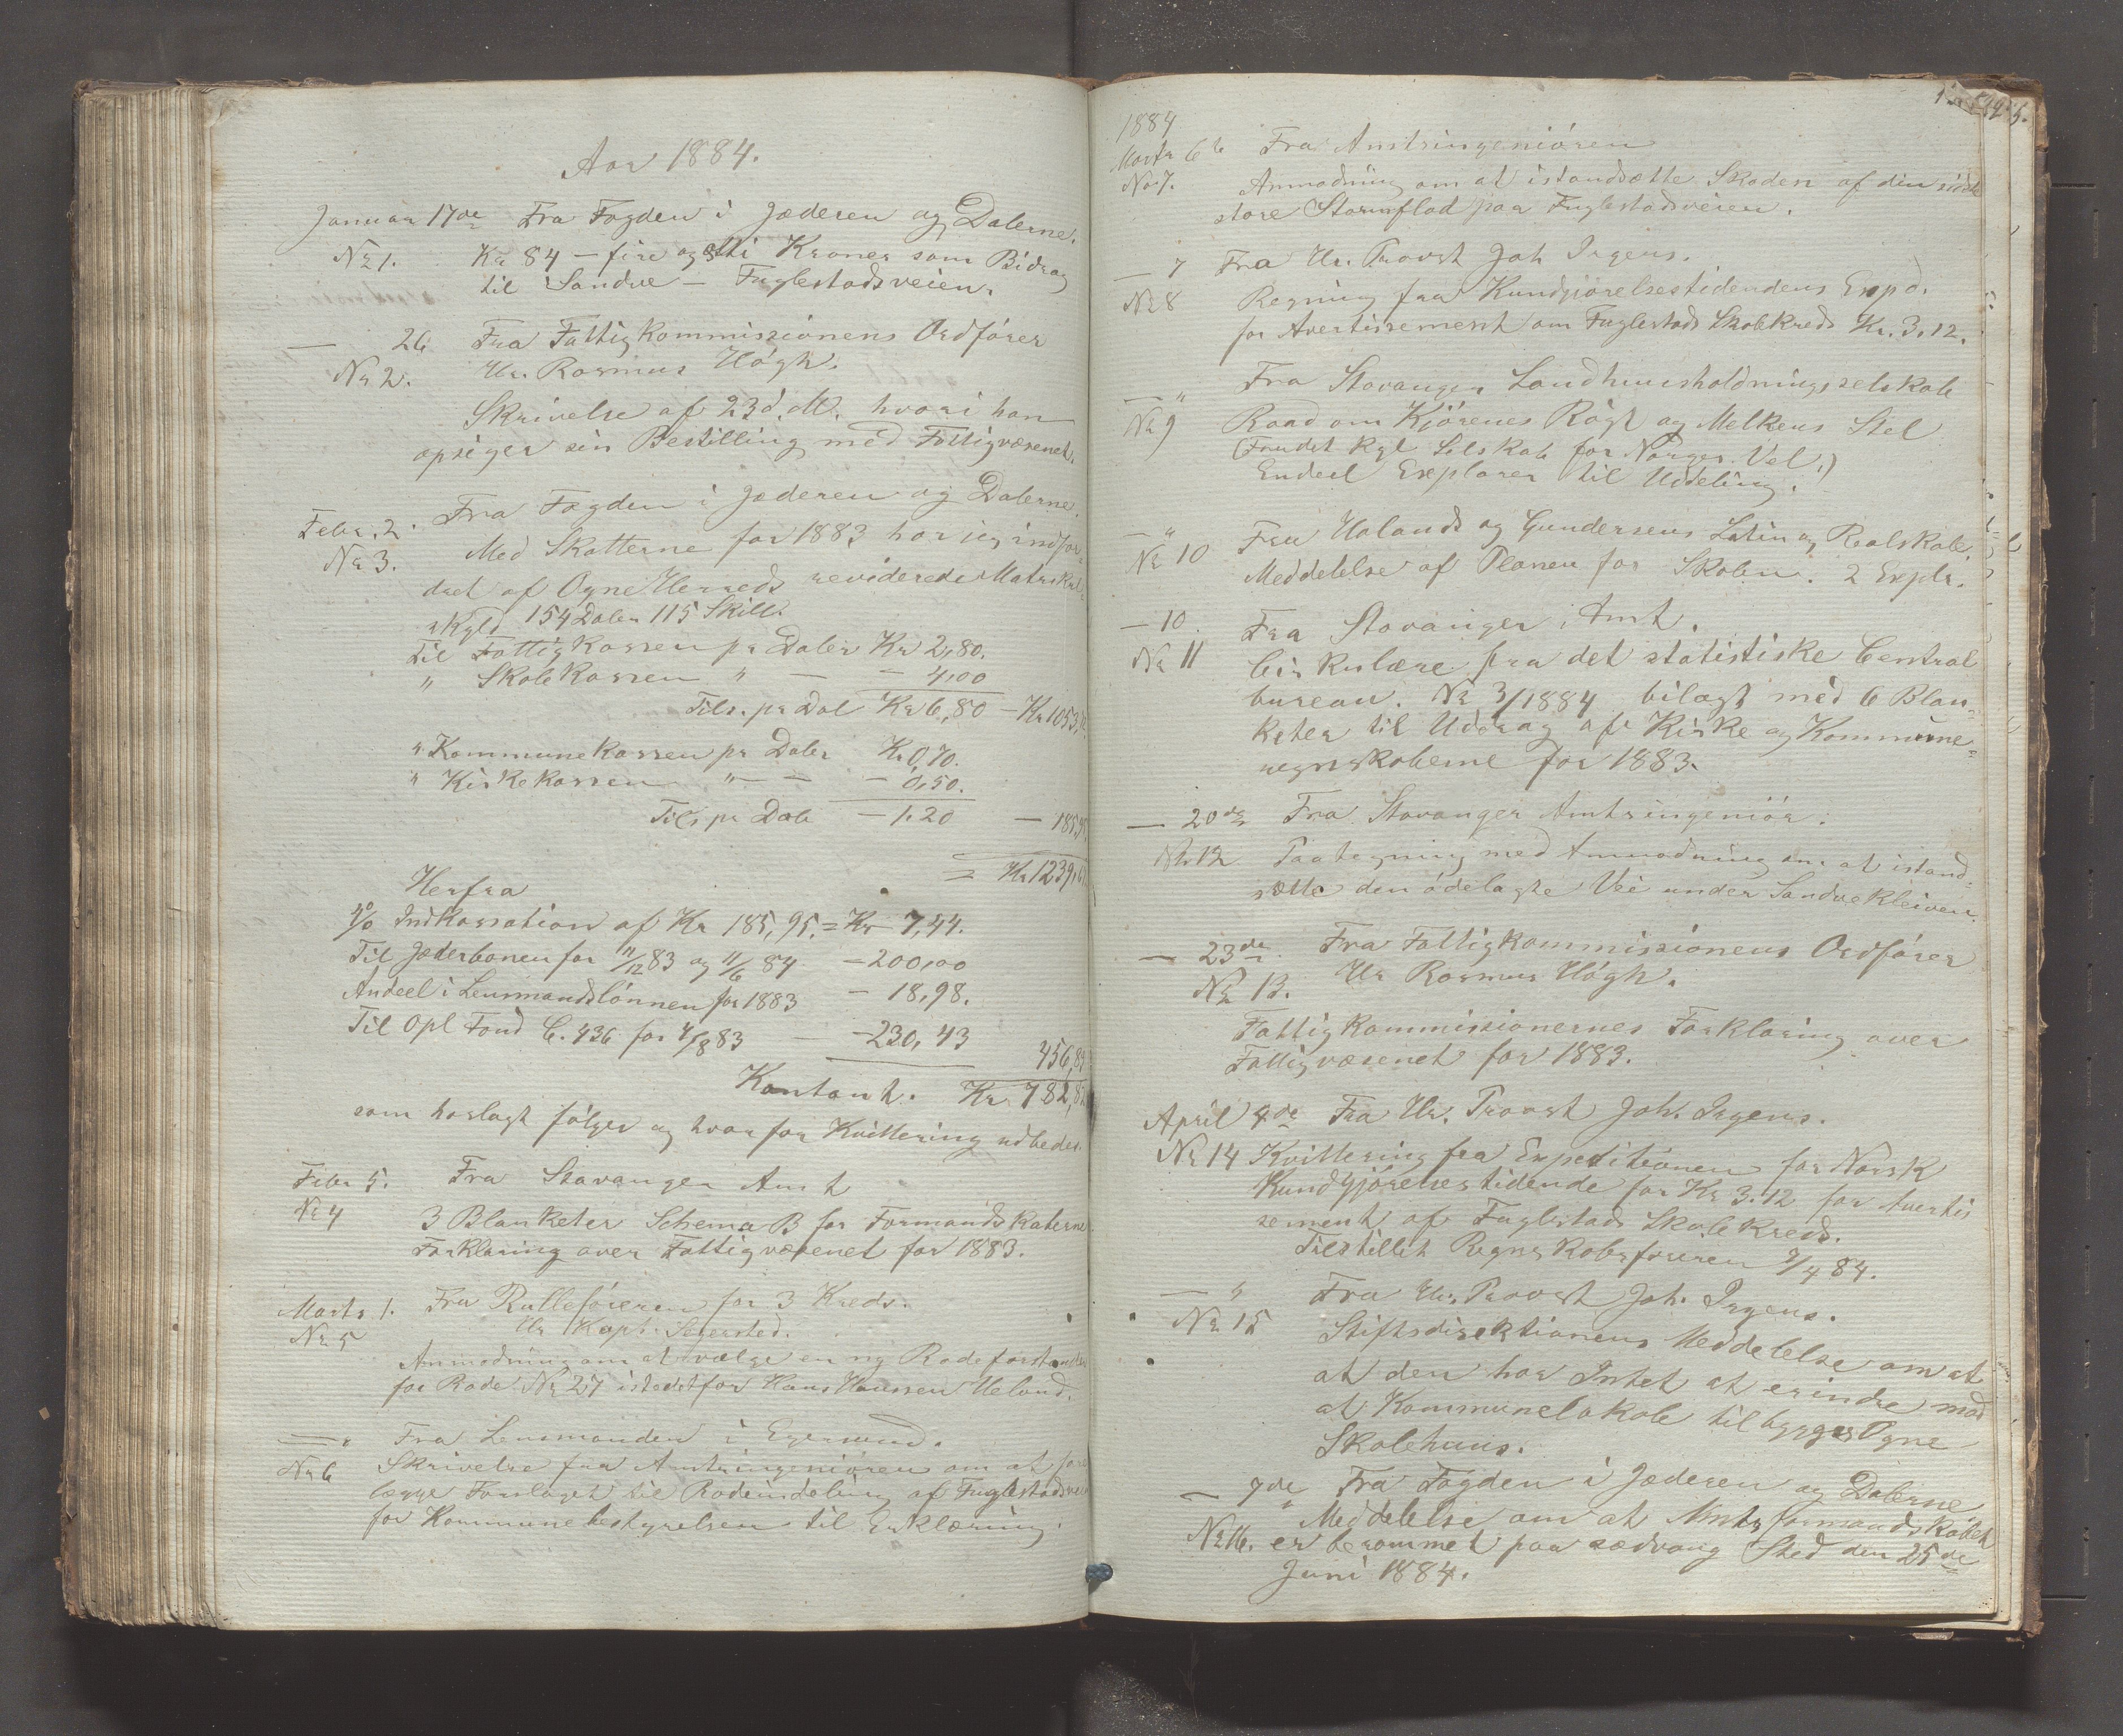 Aar 1884.
Januar 17de Fra Fogden i Jæderen og Dalerne.
No 1. Kr 84 – fire og otti Kroner som Bidrag
til Sandve – Fuglestadsveien.
— 26 Fra Fattigkommissionens Ordfører
No 2. Hr. Rasmus Høgh.
Skrivelse af 23 d. M. hvori han
opsiger sin Bestilling med Fattigvæsenet.
Febr. 2. Fra Fogden i Jæderen og Dalerne.
No 3. Med Skatterne for 1883 har jeg indfor-
dret af Ogne Herreds reviderede Matrikul-
skyld 154 Daler 115 Skill.
Til Fattigkassen pr Daler Kr 2,80.
" Skolekassen " — — 4,00
Tils. pr Dal Kr 6,80 – Kr 1053,
" Kommunekassen pr Daler Kr 0,70.
" Kirkekassen " — — 0,50.
Tils. pr Dal — 1,20 — 185,95
= Kr 1239,
Herfra
4% Indkassation af Kr 185,95. = Kr 7,44.
Til Jæderbanen for 11/12 83 og 11/6 84 — 200,00
Andeel i Lensmandslønnen for 1883 — 18,98.
Til Opl Fond C. 436 for 4/8 83 — 230,43
456,85
Kontant. Kr. 782,82
som hoslagt følger og hvorfor Kvittering udbedes.
Febr 5. Fra Stavanger Amt
No 4 3 Blanketer Schema B for Formandskaberne
Forklaring over Fattigvæsenet for 1883.
Marts 1. Fra Rulleføreren for 3 Kreds.
No 5 Hr Kapt. Segersted.
Anmodning om at vælge en ny Rodeforstander
for Rode No 27 istedetfor Hans Hanssen Ueland.
— " Fra Lensmanden i Egersund.
No 6 Skrivelse fra Amtsingeniøren om at fore
lægge Forslaget til Rodeindeling af Fuglestadsveien
for Kommunebestyrelsen til Erklæring.
1884
Marts 6te Fra Amtsingeniøren
No 7. Anmodning om at istandsætte Skaden af den sidste
store Stormflod paa Fuglestadsveien.
— 7 Fra Hr. Provst Joh Irgens.
No 8 Regning fra Kundgjørelsestidendens Exped.
for Avertissement om Fuglestads Skolekreds Kr. 3.12.
— " Fra Stavanger Landhuusholdningsselskab
No 9 Raad om Kjørenes Røgt og Melkens Stel
(Fra det Kgl Selskab for Norges Vel.)
Endeel Explarer til Uddeling.
— " Fra Ualands og Gundersens Latin og Realskole.
No 10 Meddelelse af Planen for Skolen. 2 Explr.
— 10. Fra Stavanger Amt.
No 11 Cirkulære fra det statistiske Central
bureau. No 3/1884 bilagt med 6 Blan-
keter til Uddrag af Kirke og Kommune-
regnskaberne for 1883.
— 20de Fra Stavanger Amtsingeniør.
No 12 Paategning med Anmodning om at istand-
sætte den ødelagte Vei under Sandvekleiven.
— 23de Fra Fattigkommissionens Ordfører
No 13. Hr Rasmus Høgh.
Fattigkommissionernes Forklaring over
Fattigvæsenet for 1883.
April 4de Fra Hr. Provst Joh. Irgens.
No 14 Kvittering fra Expeditionen for Norsk
Kundgjørelsestidende for Kr 3.12 for Avertis
sement af Fuglestads Skolekreds.
Tilstillet Regnskabsføreren 9/4 84.
— " Fra Hr. Provst Joh. Irgens.
No 15 Stiftsdirektionens Meddelelse om at
at den har Intet at erindre mod
at Kommunelokale tilbygges Ogne
Skolehuus.
— 7de Fra Fogden i Jæderen og Dalerne
Meddelelse om at Amtsformandskabet
No 16. er berammet paa sædvang Sted den 25de
Juni 1884.